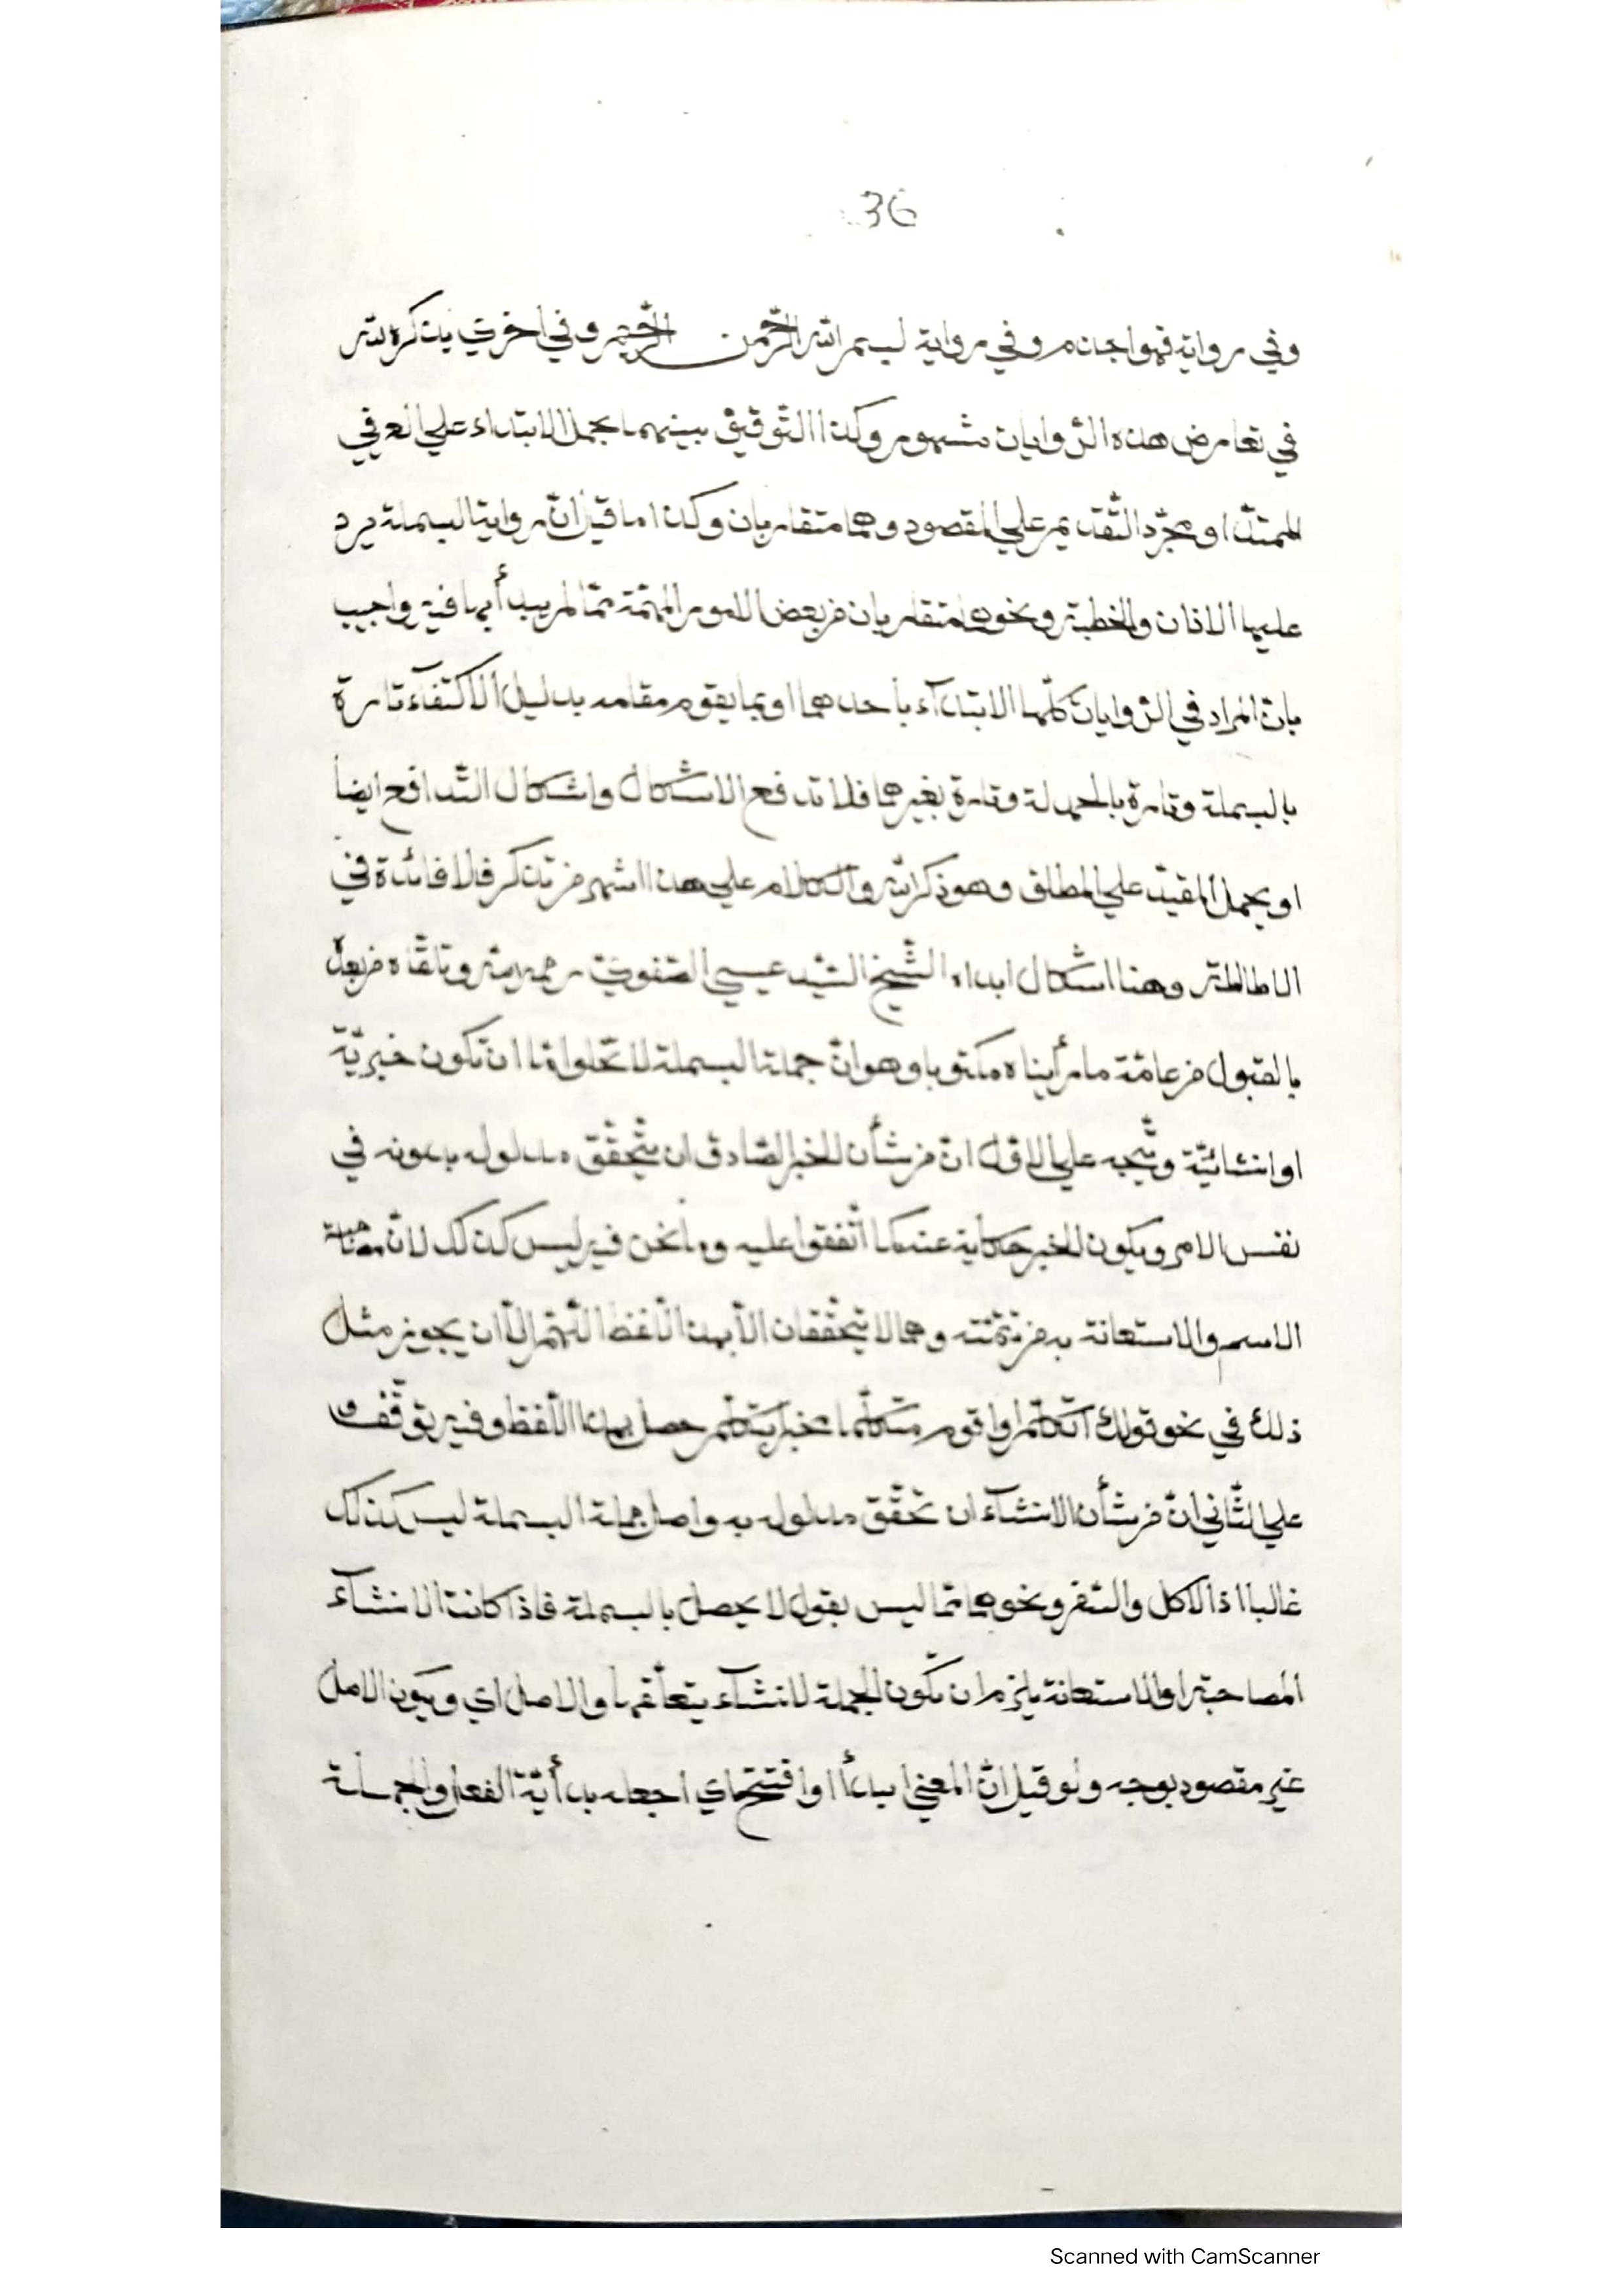 36
وفي رواية فهو اجذم وفي رواية لبسم الله الرّحمن الرّحيم وفي اخري بذكر الله
في تعارض هذه الرّوايات مشهور وكذا التّوفيق بينهما بحمل الابتداء علي العرفي
الممتدّ او مجرّد التّقديم علي المقصود وهما متقاربان وكذا ما قيل انّ رواية البسملة يرد
عليها الاذان والخطبة ونحوهما متقاربان من بعض الامور المهمّة ممّا لم يبدأ بها فيه واجيب
بانّ المراد في الرّوايات كلّها الابتدآء بأحدهما او بما يقوم مقامه بدليل الاكتفآء تارة
بالبسملة وتارة بالحمدلة وتارة بغيرهما فلا تدفع الاشكال واشكال التّدافع ايضا
او بحمل المقيّد علي المطلق وهو ذكر الله والكلام علي هذا اشهر من تذكر فلا فائدة في
الاطالة وهنا اشكال ابداه الشّيخ السّيّد عيسي الصّفوي رحمه الله وتلقّاه من بعده
بالقبول من عامّة ما رأيناه مكتوبا وهو انّ جملة البسملة لا تخلوا امّا ان تكون خبريّة
او انشائيّة ويتّجه علي الاوّل انّ من شأن الخبر الصّادق ان يتحقّق مدلوله بدونه في
نفس الامر ويكون الخبر حكاية عنه كما اتّفقوا عليه وما نحن فيه ليس كذلك لانّ مصاحبة
الاسم والاستعانة به من تتمّته وهما لا يتحقّقان الّا بهذا اللّفظ اللّهمّ الّا ان يجوز مثل
ذلك في نحو قولك اتكلّم او اقوم متكلّما مخبر بتكلّم حصل بهذا اللّفظ وفيه توقّف و
علي الثّاني انّ من شأن الانشآء ان تحقّق مدلوله به واصل جملة البسملة ليس كذلك
غالبا اذ الاكل والسّفر ونحوهما ممّا ليس بقول لا يحصل بالبسملة فاذا كانت الانشآء
المصاحبة او الاستعانة يلزم ان تكون الجملة لانشآء يتعلّق بها والاصل اي ويكون الاصل
غير مقصود بوجه ولو قيل انّ المعني ابدأ او افتتح اي اجعله بدأية الفعل والجملة
Scanned with CamScanner